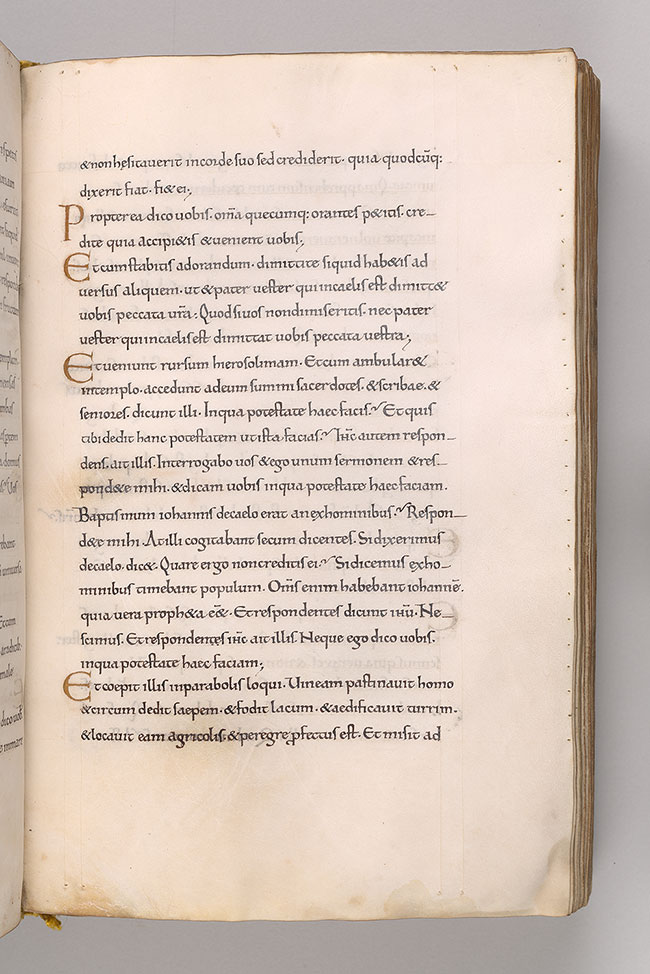 &non hęsitauerit incorde suo sed crediderit· quia quodcūq:
dixerit fiat· fi& ei;
Propterea dico uobis· om̄a quecumq; orantes p&itis· cre-
dite quia accipi&is &uenient uobis;
Et cum stabitis adorandum· dimittite siquid hab&is ad
uersus aliquem· ut &pater uester quiincaelis est dimitt&
uobis peccata ur̄a; Quod siuos nondimiseritis· nec pater
uester quiincaelis est dimittat uobis peccata uestra;
Et ueniunt rursum hierosolimam· Et cum ambular&
intemplo· accedunt adeum summi sacerdotes· &scribae· &
seniores· dicunt illi· Inqua potestate haec facis? Et quis
tibi dedit hanc potestatem ut ista facias? ih̄c autem respon-
dens· ait illis· Interrogabo uos &ego unum sermonem &res-
pond&e mihi· &dicam uobis inqua potestate haec faciam·
Baptismum iohannis decaelo erat an exhominibus? Respon-
d&e mihi· At illi cogitabant secum dicentes· Si dixerimus
decaelo· dic&· Quare ergo non creditis ei? Si dicemus exho-
minibus timebant populum· Om̄s enim habebant iohannē·
quia uera proph&a eē&· Et respondentes dicunt ihū· Ne-
scimus· Et respondentes ih̄c ait illis· Neque ego dico uobis·
inqua potestate haec faciam;
Et coepit illis inparabolis loqui· Uineam pastinauit homo
&circum dedit saepem· &fodit lacum· &aedificauit turrim·
&locauit eam agricolis· &peregre ꝓfectus est· Et misit ad